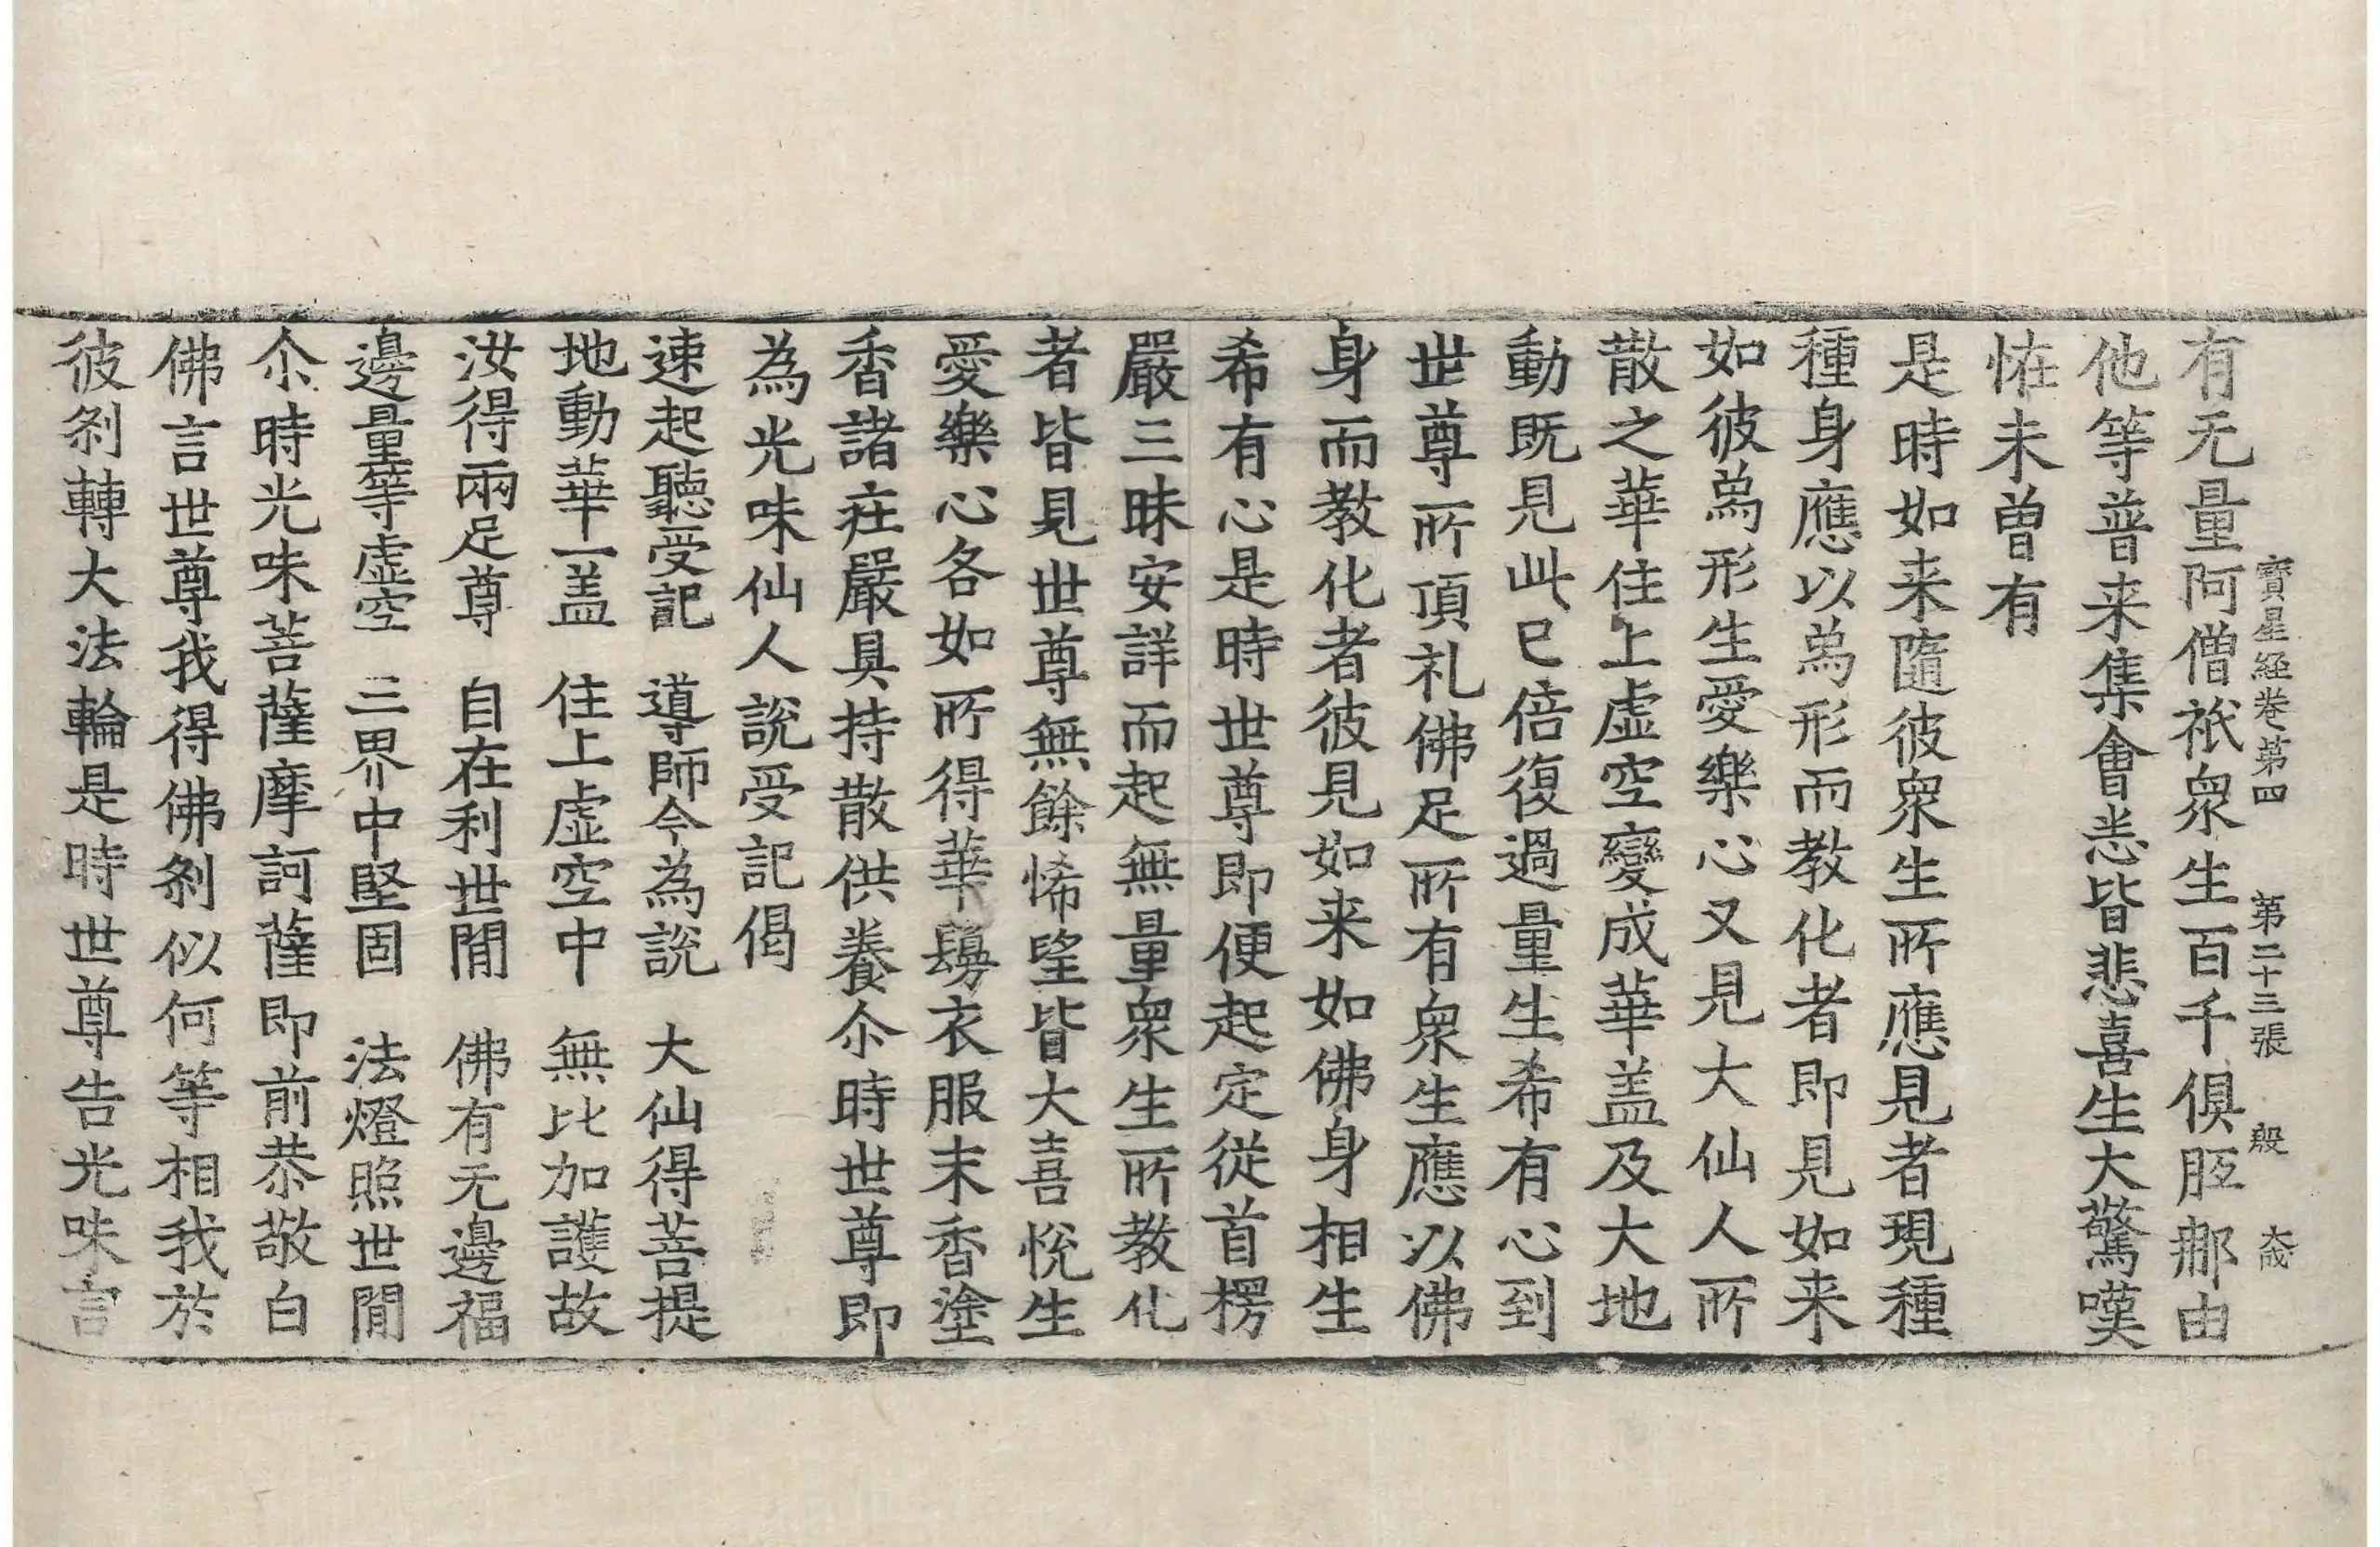 寶星経卷第四 第二十三張 殷 大成
有无量阿僧祇衆生百千俱胝那由
他等普来集會悉皆悲喜生大驚嘆
恠未曽有
是時如来隨彼衆生所應見者現種
種身應以為形而教化者即見如来
如彼為形生愛樂心又見大仙人所
散之華住上虚空變成華盖及大地
動既見此已倍復過量生希有心到
世尊所頂礼佛足所有衆生應以佛
身而教化者彼見如来如佛身相生
希有心是時世尊即便起定從首楞
嚴三昧安詳而起無量衆生所教化
者皆見世尊無餘悕望皆大喜悅生
愛樂心各如所得華鬘衣服末香塗
香諸莊嚴具持散供養尒時世尊即
為光味仙人說受記偈
速起聽受記 導師今為說 大仙得菩提
地動華一盖 住上虚空中 無比加護故
汝得兩足尊 自在利世間 佛有无邊福
邊量等虚空 三界中堅固 法燈照世間
尒時光味菩薩摩訶薩即前恭敬白
佛言世尊我得佛刹似何等相我於
彼刹轉大法輪是時世尊告光味言